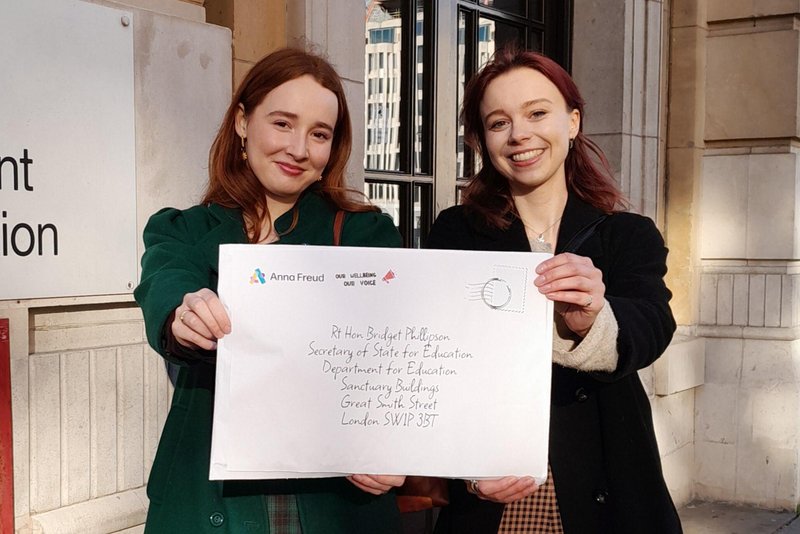 nt
ion
Anna Freud
OUR WELLBEING
OUR VOICE
Rt Hon Bridget Phillipson
Secretary of State for Education
Department for Education
Sanctuary Buildings
Great Smith Street
London SW1P 3BT